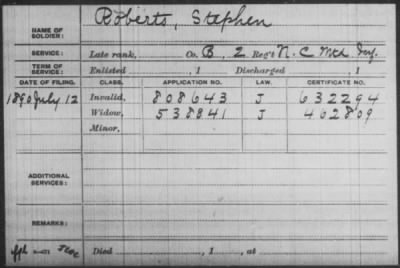 Roberts, Stephen
NAME OF SOLDIER:
SERVICE: Late rank, Co. B, 2 Reg't N. C. Mtd Inf.
TERM OF SERVICE: Enlisted , 1 Discharged , 1
DATE OF FILING. CLASS. APPLICATION NO. LAW. CERTIFICATE NO.
1890 July 12 Invalid, 808643 J 632294
Widow, 538841 J 402809
Minor,
ADDITIONAL SERVICES:
REMARKS:
Died , 1 , at